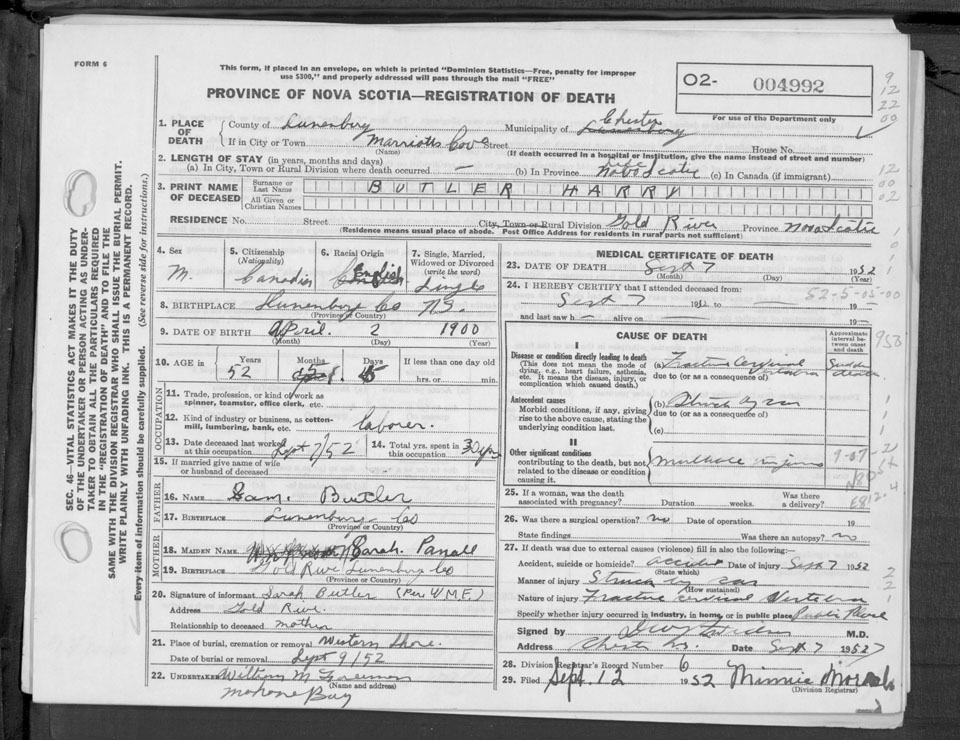 FORM 6
This form, if placed in an envelope, on which is printed "Dominion Statistics—Free, penalty for improper
use $300," and properly addressed will pass through the mail "FREE"
PROVINCE OF NOVA SCOTIA—REGISTRATION OF DEATH
O2- 004992
For use of the Department only
1. PLACE OF DEATH
County of Lunenburg Municipality of Chester Lunenburg
If in City or Town Marriotts Cove Street House No.
(Name) (If death occurred in a hospital or institution, give the name instead of street and number)
2. LENGTH OF STAY (in years, months and days)
(a) In City, Town or Rural Division where death occurred — (b) In Province life Nova Scotia (c) In Canada (if immigrant)
3. PRINT NAME OF DECEASED
Surname or Last Name BUTLER HARRY
All Given or Christian Names
RESIDENCE No. Street City, Town or Rural Division Gold River Province Nova Scotia
(Residence means usual place of abode. Post Office Address for residents in rural parts not sufficient)
SEC. 46—VITAL STATISTICS ACT MAKES IT THE DUTY
OF THE UNDERTAKER OR PERSON ACTING AS UNDER-
TAKER TO OBTAIN ALL THE PARTICULARS REQUIRED
IN THE "REGISTRATION OF DEATH" AND TO FILE THE
SAME WITH THE DIVISION REGISTRAR WHO SHALL ISSUE THE BURIAL PERMIT.
WRITE PLAINLY WITH UNFADING INK. THIS IS A PERMANENT RECORD.
Every item of information should be carefully supplied. (See reverse side for instructions.)
4. Sex M.
5. Citizenship (Nationality) Canadian
6. Racial Origin English
7. Single, Married, Widowed or Divorced (write the word) Single
8. BIRTHPLACE Lunenburg Co N.S.
(Province or Country)
9. DATE OF BIRTH April 2 1900
(Month) (Day) (Year)
10. AGE in Years 52 Months 5 Days 5 If less than one day old hrs. or min.
OCCUPATION
11. Trade, profession, or kind of work as
spinner, teamster, office clerk, etc.
12. Kind of industry or business, as cotton-
mill, lumbering, bank, etc. laborer.
13. Date deceased last worked at this occupation Sept 7/52
14. Total yrs. spent in this occupation 30 yrs
15. If married give name of wife
or husband of deceased
FATHER
16. NAME Sam. Butler
17. BIRTHPLACE Lunenburg Co
(Province or Country)
MOTHER
18. MAIDEN NAME Sarah.
19. BIRTHPLACE Gold River Lunenburg Co
(Province or Country)
20. Signature of informant Sarah Butler (Per W.M.F.)
Address Gold River.
Relationship to deceased mother
21. Place of burial, cremation or removal Western Shore.
Date of burial or removal Sept 9/52
22. UNDERTAKER M
(Name and address)
Mahone Bay
MEDICAL CERTIFICATE OF DEATH
23. DATE OF DEATH Sept 7 1952
(Month) (Day)
24. I HEREBY CERTIFY that I attended deceased from:
Sept 7 1952 to — 19—
and last saw h — alive on — 19—
52-5-05-00
CAUSE OF DEATH
Approximate interval between onset and death
I
Disease or condition directly leading to death
(This does not mean the mode of
dying, e.g., heart failure, asthenia,
etc. It means the disease, injury, or
complication which caused death.)
(a) Fracture Cervical
due to (or as a consequence of)
Sudden death
Antecedent causes
Morbid conditions, if any, giving
rise to the above cause, stating the
underlying condition last.
(b) Struck by car
due to (or as a consequence of)
(c)
II
Other significant conditions
contributing to the death, but not
related to the disease or condition
causing it.
multiple injuries
25. If a woman, was the death
associated with pregnancy? Duration weeks. Was there a delivery?
26. Was there a surgical operation? no Date of operation 19
State findings Was there an autopsy? no
27. If death was due to external causes (violence) fill in also the following:—
Accident, suicide or homicide? accident Date of injury Sept 7 1952
(State which)
Manner of injury Struck by car
(How sustained)
Nature of injury Fracture cervical Vertebra
Specify whether injury occurred in industry, in home, or in public place Public Place
Signed by M.D.
Address Chester N.S. Date Sept 7 1952
28. Division Registrar's Record Number 6
29. Filed Sept. 12 1952 Minnie
(Division Registrar)